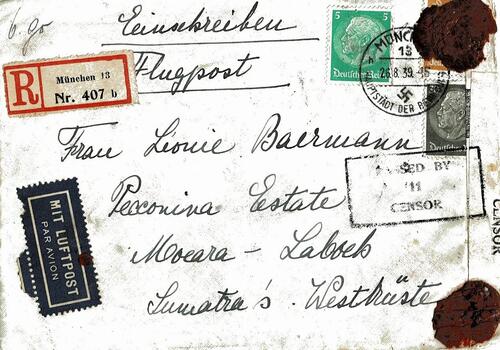 6. 90
Einschreiben
Flugpost
5 5
Deutsches Reich
MÜNCHEN
13
26.8.39.
HAUPTSTADT DER BEWEGUNG
R
München 13
Nr. 407 b
Deutsches
Frau Léonie Baermann
PASSED BY
11
CENSOR
CENSOR
Peconina Estate
MIT LUFTPOST
PAR AVION
Moeara-Laboeh
Sumatra's Westküste